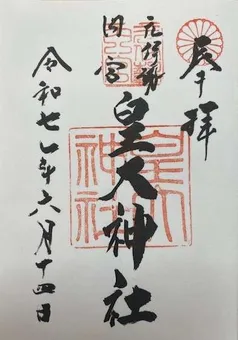 奉拝
元伊勢
内宮
皇大神社
令和七年六月十四日